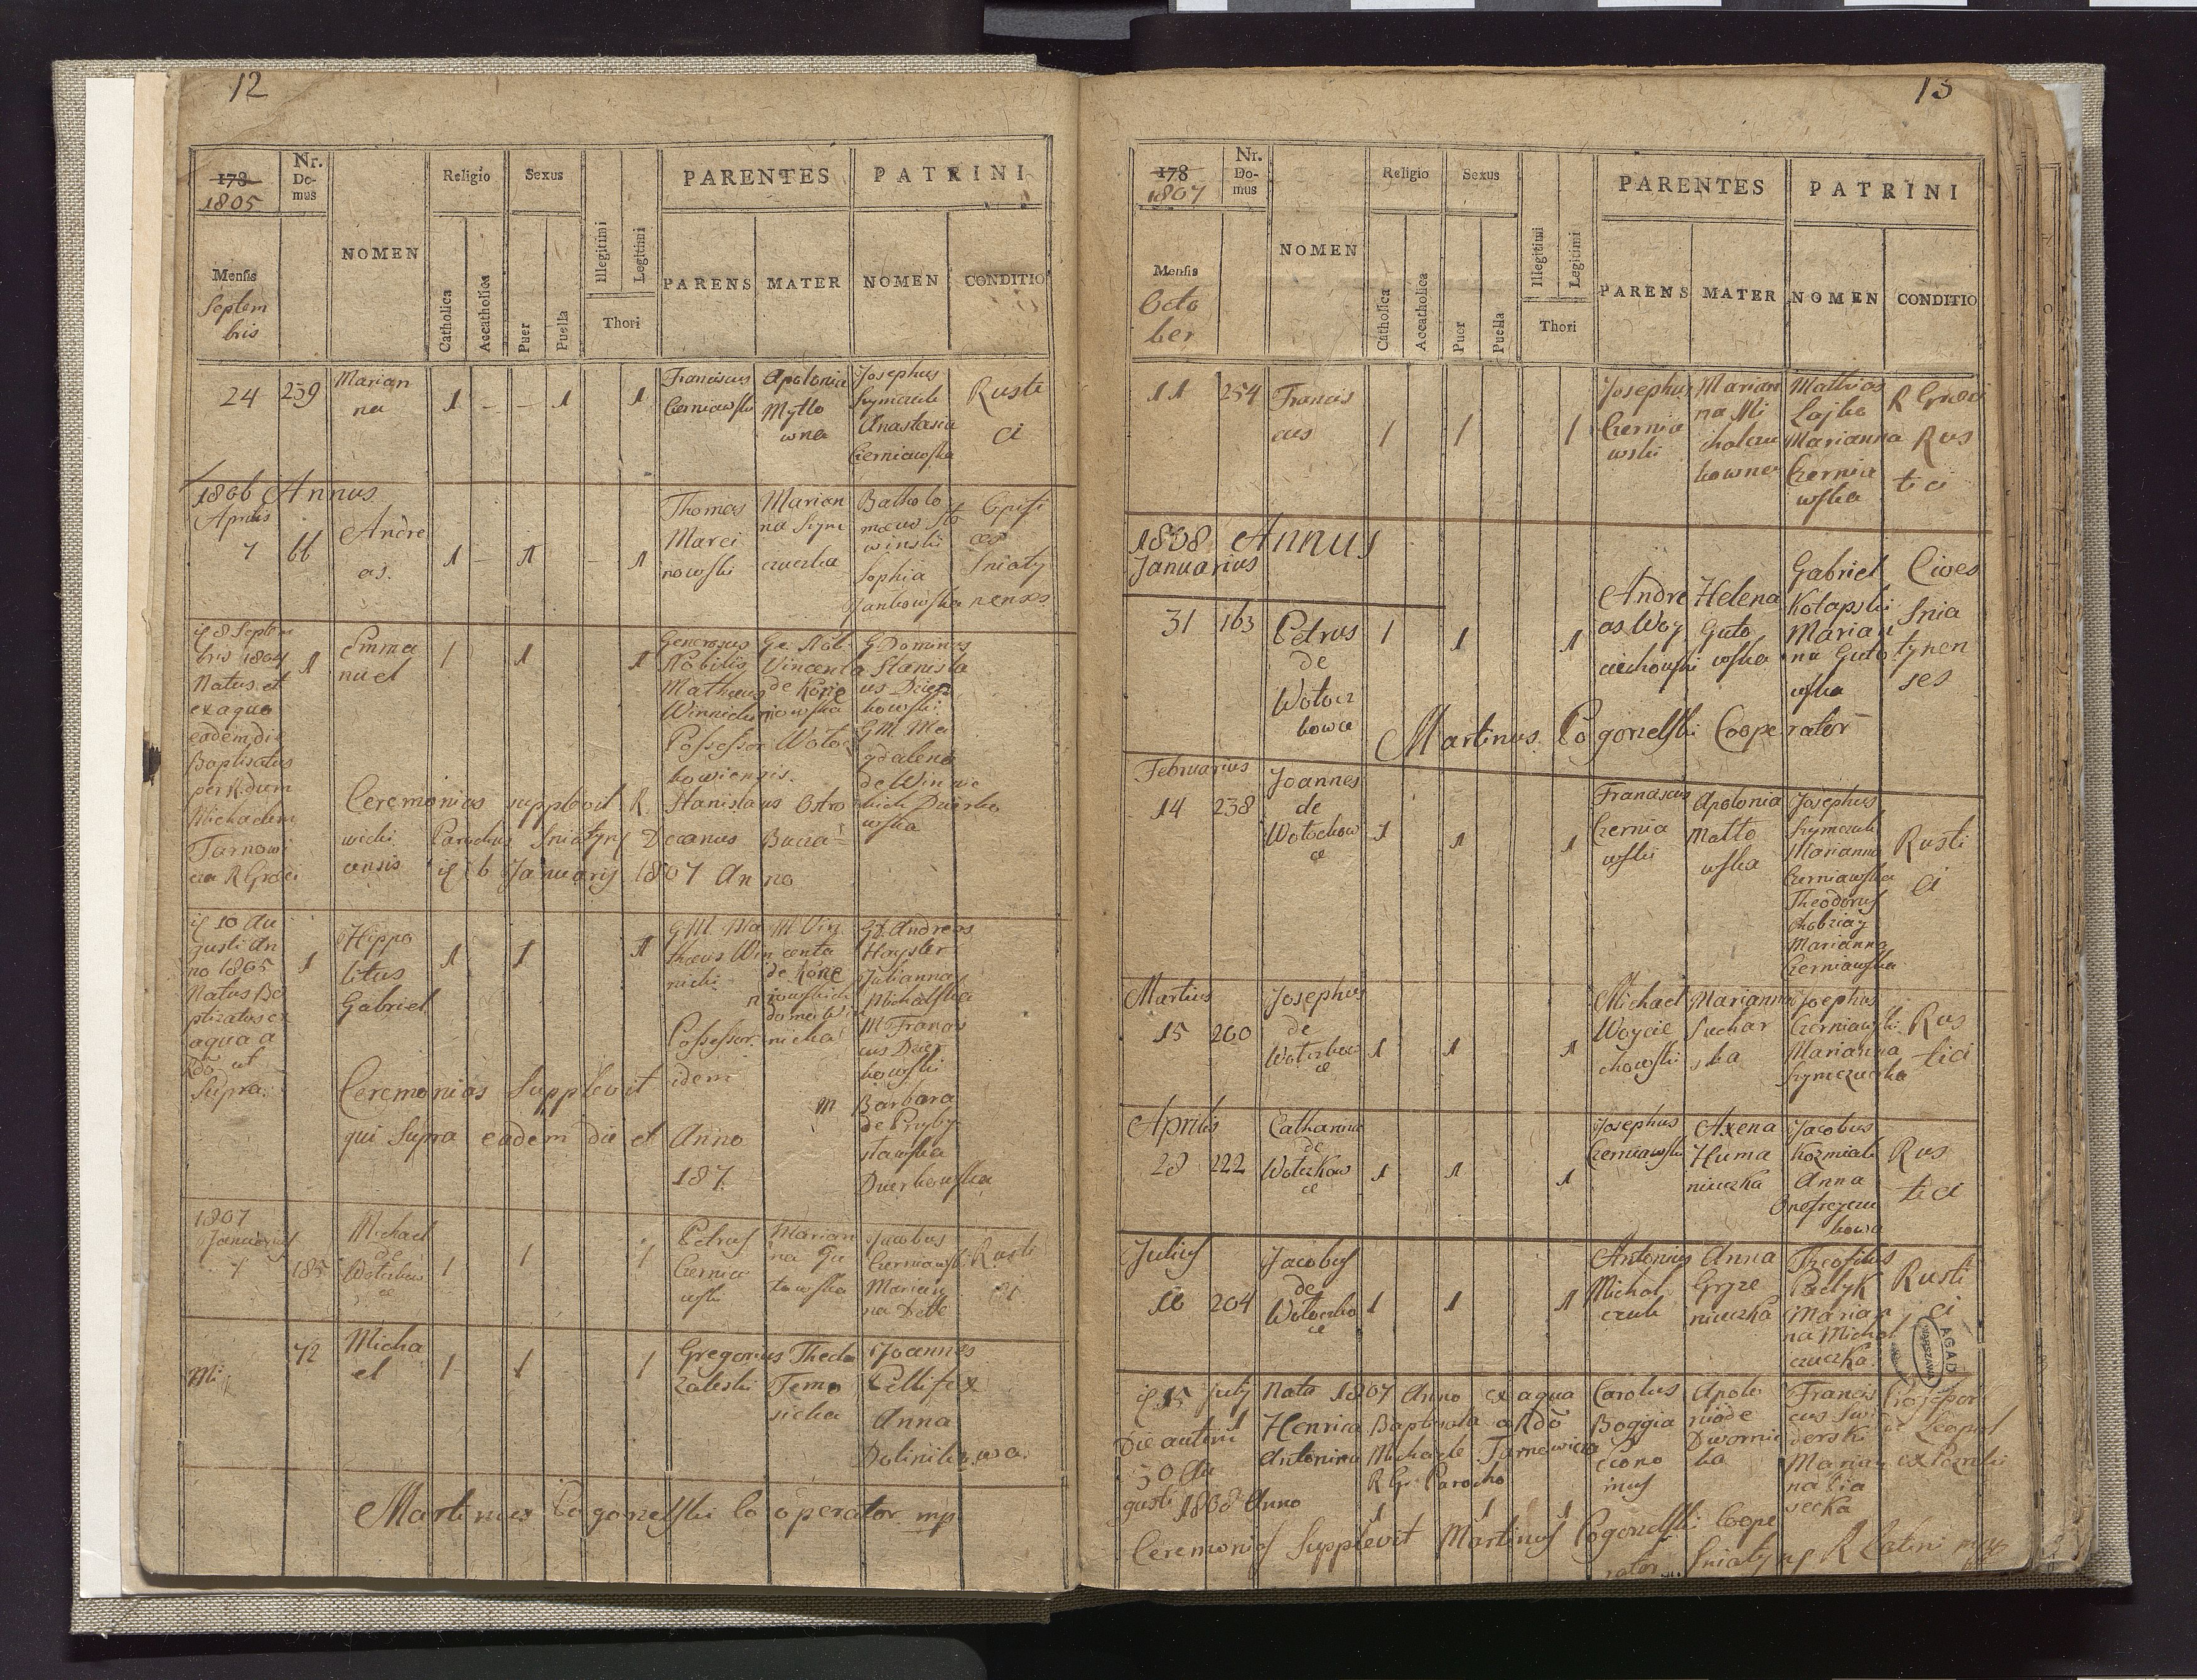 12
178
1805
Nr.
Do-
mus
NOMEN
Religio
Sexus
PARENTES
PATRINI
Mensis
Septem
bris
Catholica
Accatholica
Puer
Puella
Illegitimi
Legitimi
Thori
PARENS
MATER
NOMEN
CONDITIO
24
239
Marian
na
1 - - 1 1
Franciscus
Czerniawski
Apolonia
Mytto
wna
Josephus
Szymczuk
Anastasia
Czerniawska
Rusti
ci
1806 Annus
Aprilis
7
66
Andre
as.
1 - 1 - 1
Thomas
Marci
nowski
Marian
na
czuczka
Batholo
maeus
winski
Sophia
Jankowska
Sniaty
nenses
8 Septem
bris 1804
Natus et
ex aqua
eadem die
Baptisatus
per Rdum
Michaelem
Tarnowi
cza R Graeci
1
Emma
nuel
1 1 1
Generosus
Nobilis
Mathaeus
Winnicki
Possessor Wolocz
kowiensis.
Vincenta
de Korze
niowska
G Dominus
Stanisla
us Dzier
kowski
G M Ma
gdalena
de Winnic
kich Dzierko
wska
Ceremonias supplevit R. Stanislaus Ostro
wicki Parochus Sniatyn Decanus Bucca
censis 6 Januarij 1807 Anno
10 Au
gusti An
no 1805
Natus Ba
ptizatus ex
aqua a
Rdo ut
Supra.
1
Hippo
litus
Gabriel
1 1 1
G M Ma
thaeus Win
nicki
Possessor
M Vin
centa
de Korze
niowskich
nicka
Gd. Andreas
Hayster
Julianna
Michalska
M Francis
cus Dzier
kowski
M Barbara
de Przyby
stawska
Dzierkowska
Ceremonias Supplevit idem
qui Supra eadem die et Anno
187
1807
Januarius
7
185
Michael
de
Wolczkow
ce
1 1 1
Petrus
Czernia
wski
Marian
na Gu
towska
Jacobus
Czerniawski
Marian
na
Rusti
ci
72
Micha
el
1 1 1
Gregorius
Zaleski
Thecla
Tema
sicka
Joannes
Pellifex
Anna
Dolinikowa.
Martinus Pogonelski Cooperator mp
13
178
1807
Nr.
Do-
mus
NOMEN
Religio
Sexus
PARENTES
PATRINI
Mensis
Octo
ber
Catholica
Accatholica
Puer
Puella
Illegitimi
Legitimi
Thori
PARENS
MATER
NOMEN
CONDITIO
11
254
Francis
cus
1 1 1
Josephus
Czernia
wski
Marian
na Mi
chalczu
kowna
Mathias
Lajko
Marianna
Czernia
wska
R Graeci
Rus
tici
1808 Annus
Januarius
31
163
Petrus
de
Wolocz
kowce
1 1 1
Andre
as Woy
ciechowski
Helena
Guto
wska
Gabriel
Kolapski
Marian
na Guto
wska
Cives
Snia
tynen
ses
Martinus Pogonelski Cooperator
Februarius
14
238
Joannes
de
Wolochow
ce
1 1 1
Franciscus
Czernia
wski
Apolonia
Matto
wska
Josephus
Szymczuk
Marianna
Czerniawska
Theodorus
Marianna
Czerniawska
Rusti
ci
Martius
15
260
Josephus
de
Wolczkow
ce
1 1 1
Michael
Woycie
chowski
Marianna
Suchar
ska
Josephus
Czerniawski
Marianna
Szymczuczka
Rus
tici
Aprilis
28
222
Catharina
de
Wolczkow
ce
1 1 1
Josephus
Czerniawski
Axena
Huma
niuczka
Jacobus
Kozmiak
Anna
Onofrejczu
kowa
Rus
tici
Julius
10
204
Jacobus
de
Woloczko
ce
1 1 1
Antonius
Michal
czuk
Anna
Gryze
niuczka
Theofilus
Padyk
Marian
na Michal
czuczka.
Rusti
ci
AGAD
WARSZAWA
15 July
Die autem
30 Au
gusti 1808 Anno
Nata 1807 Anno ex aqua
Henrica Baptisata a Rdo
Antonina Michaele Tarnowicz
R Gr Parocho
1 1 1
Carolus
Boggia
Econo
mus
Apolo
nia de
Dworni
ka
Francis
cus Swi
derski
Marian
na Lia
secka
Ceremonias Supplevit Martinus Pogonelski Coope
rator Sniatyn R Latini mp